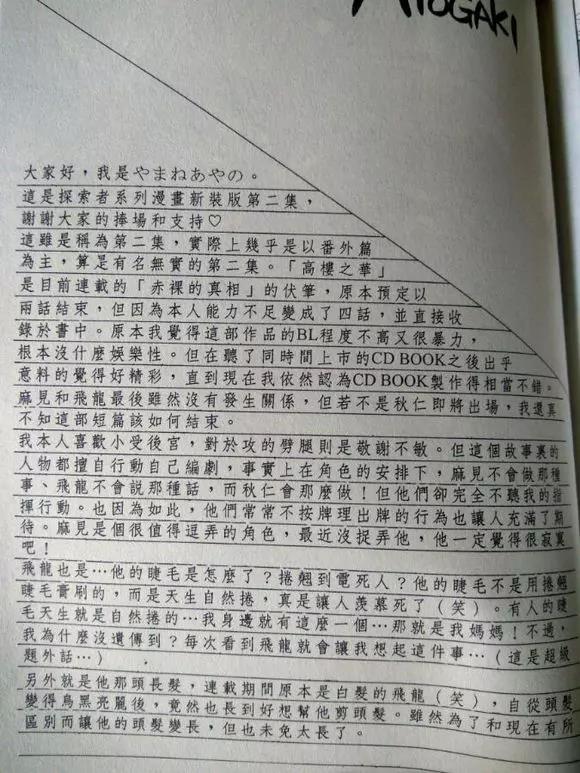 AYOGAKI
大家好，我是やまねあやの。
這是探索者系列漫畫新裝版第二集，
謝謝大家的捧場和支持♡
這雖是稱為第二集，實際上幾乎是以番外篇
為主，算是有名無實的第二集。「高樓之華」
是目前連載的「赤裸的真相」的伏筆，原本預定以
兩話結束，但因為本人能力不足變成了四話，並直接收
錄於書中。原本我覺得這部作品的BL程度不高又很暴力，
根本沒什麼娛樂性。但在聽了同時間上市的CD BOOK之後出乎
意料的覺得好精彩，直到現在我依然認為CD BOOK製作得相當不錯。
麻見和飛龍最後雖然沒有發生關係，但若不是秋仁即將出場，我還真
不知道這部短篇該如何結束。
我本人喜歡小受後宮，對於攻的劈腿則是敬謝不敏。但這個故事裏的
人物都擅自行動自己編劇，事實上在角色的安排下，麻見不會做那種
事、飛龍不會說那種話，而秋仁會那麼做！但他們卻完全不聽我的指
揮行動。也因為如此，他們常常不按牌理出牌的行為也讓人充滿了期
待。麻見是個很值得逗弄的角色，最近沒捉弄他，他一定覺得很寂寞
吧！
飛龍也是…他的睫毛是怎麼了？捲翹到電死人？他的睫毛不是用捲翹
睫毛膏刷的，而是天生自然捲，真是讓人羨慕死了（笑）。有人的睫
毛天生就是自然捲的…我身邊就有這麼一個…那就是我媽媽！不過，
我為什麼沒遺傳到？每次看到飛龍就會讓我想起這件事…（這是超級
題外話…）
另外就是他那頭長髮，連載期間原本是白髮的飛龍（笑），自從頭髮
變得烏黑亮麗後，竟然也長到好想幫他剪頭髮。雖然為了和現在有所
區別而讓他的頭髮變長，但也未免太長了。